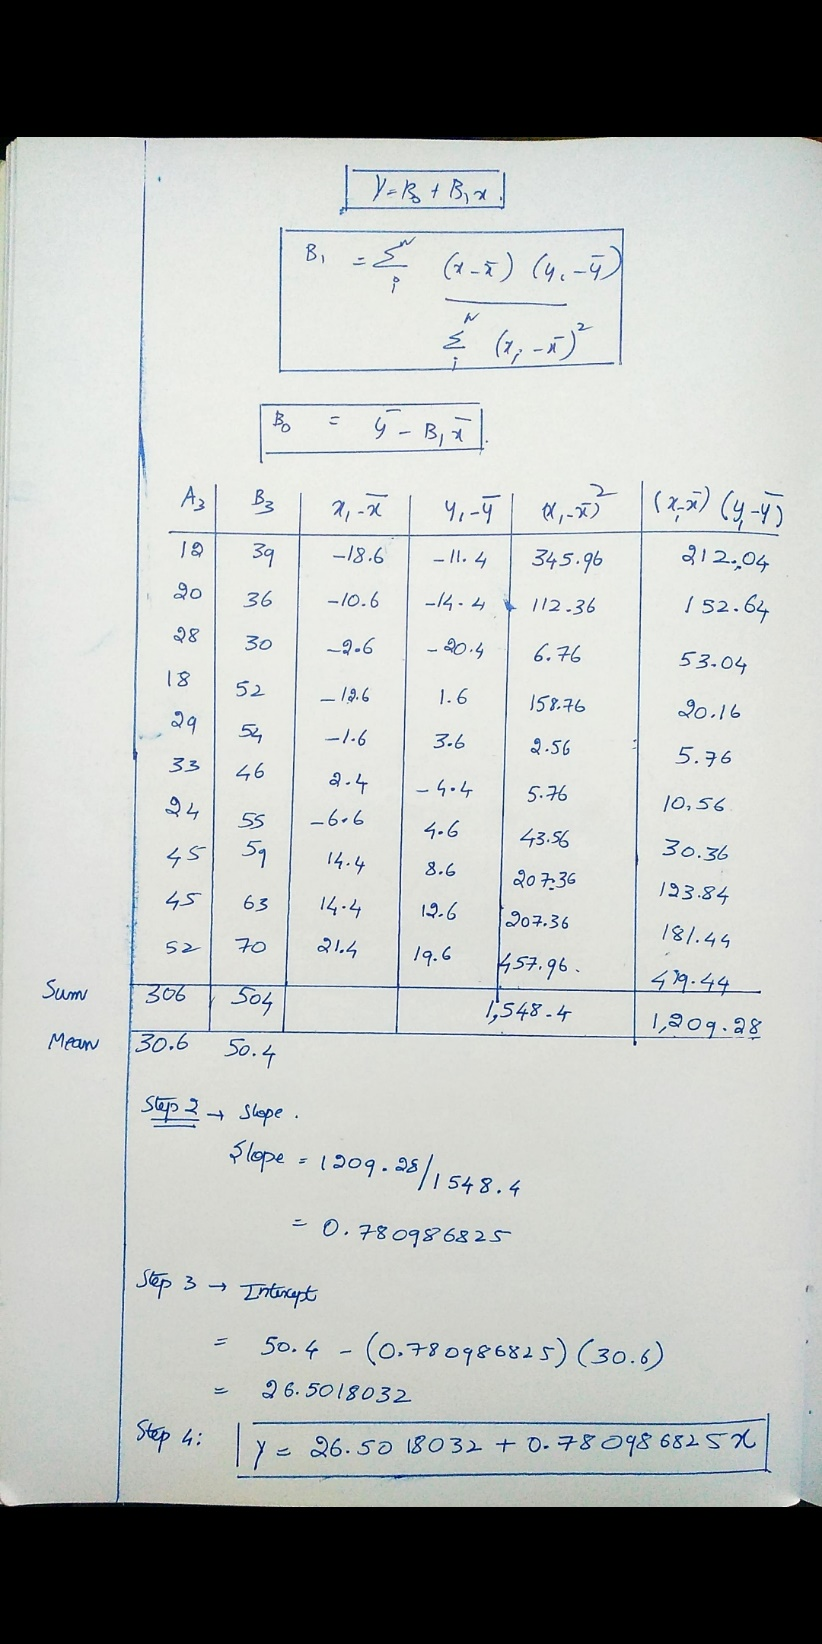 Y = B₀ + B₁x
B₁ = Σᵢᴺ (x-x̄) (y₁-ȳ)
Σᵢᴺ (xᵢ-x̄)²
B₀ = ȳ - B₁x̄
A₃ B₃ x₁-x̄ y₁-ȳ (x₁-x̄)² (x₁-x̄) (y₁-ȳ)
12 39 -18.6 -11.4 345.96 212.04
20 36 -10.6 -14.4 112.36 152.64
28 30 -2.6 -20.4 6.76 53.04
18 52 -12.6 1.6 158.76 20.16
29 54 -1.6 3.6 2.56 5.76
33 46 2.4 -4.4 5.76 10.56
24 55 -6.6 4.6 43.56 30.36
45 59 14.4 8.6 207.36 123.84
45 63 14.4 12.6 207.36 181.44
52 70 21.4 19.6 457.96 419.44
Sum 306 504 1,548.4 1,209.28
Mean 30.6 50.4
Step 2 → Slope.
Slope = 1209.28/1548.4
= 0.780986825
Step 3 → Intercept
= 50.4 - (0.780986825) (30.6)
= 26.5018032
Step 4: Y = 26.5018032 + 0.780986825x